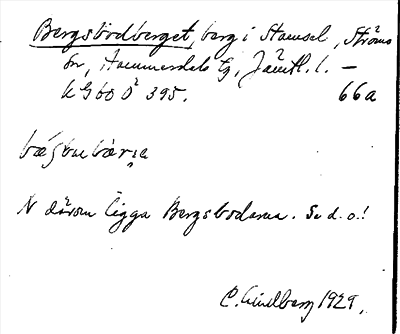 Bergsbodberget, berg i Stamsel, Ströms
sn, Hammerdals tg, Jämtl. l. —
k G 60 Ö 395. 66a
N därom ligga Bergsbodarna. Se d. o.!
C. Lindberg 1929.